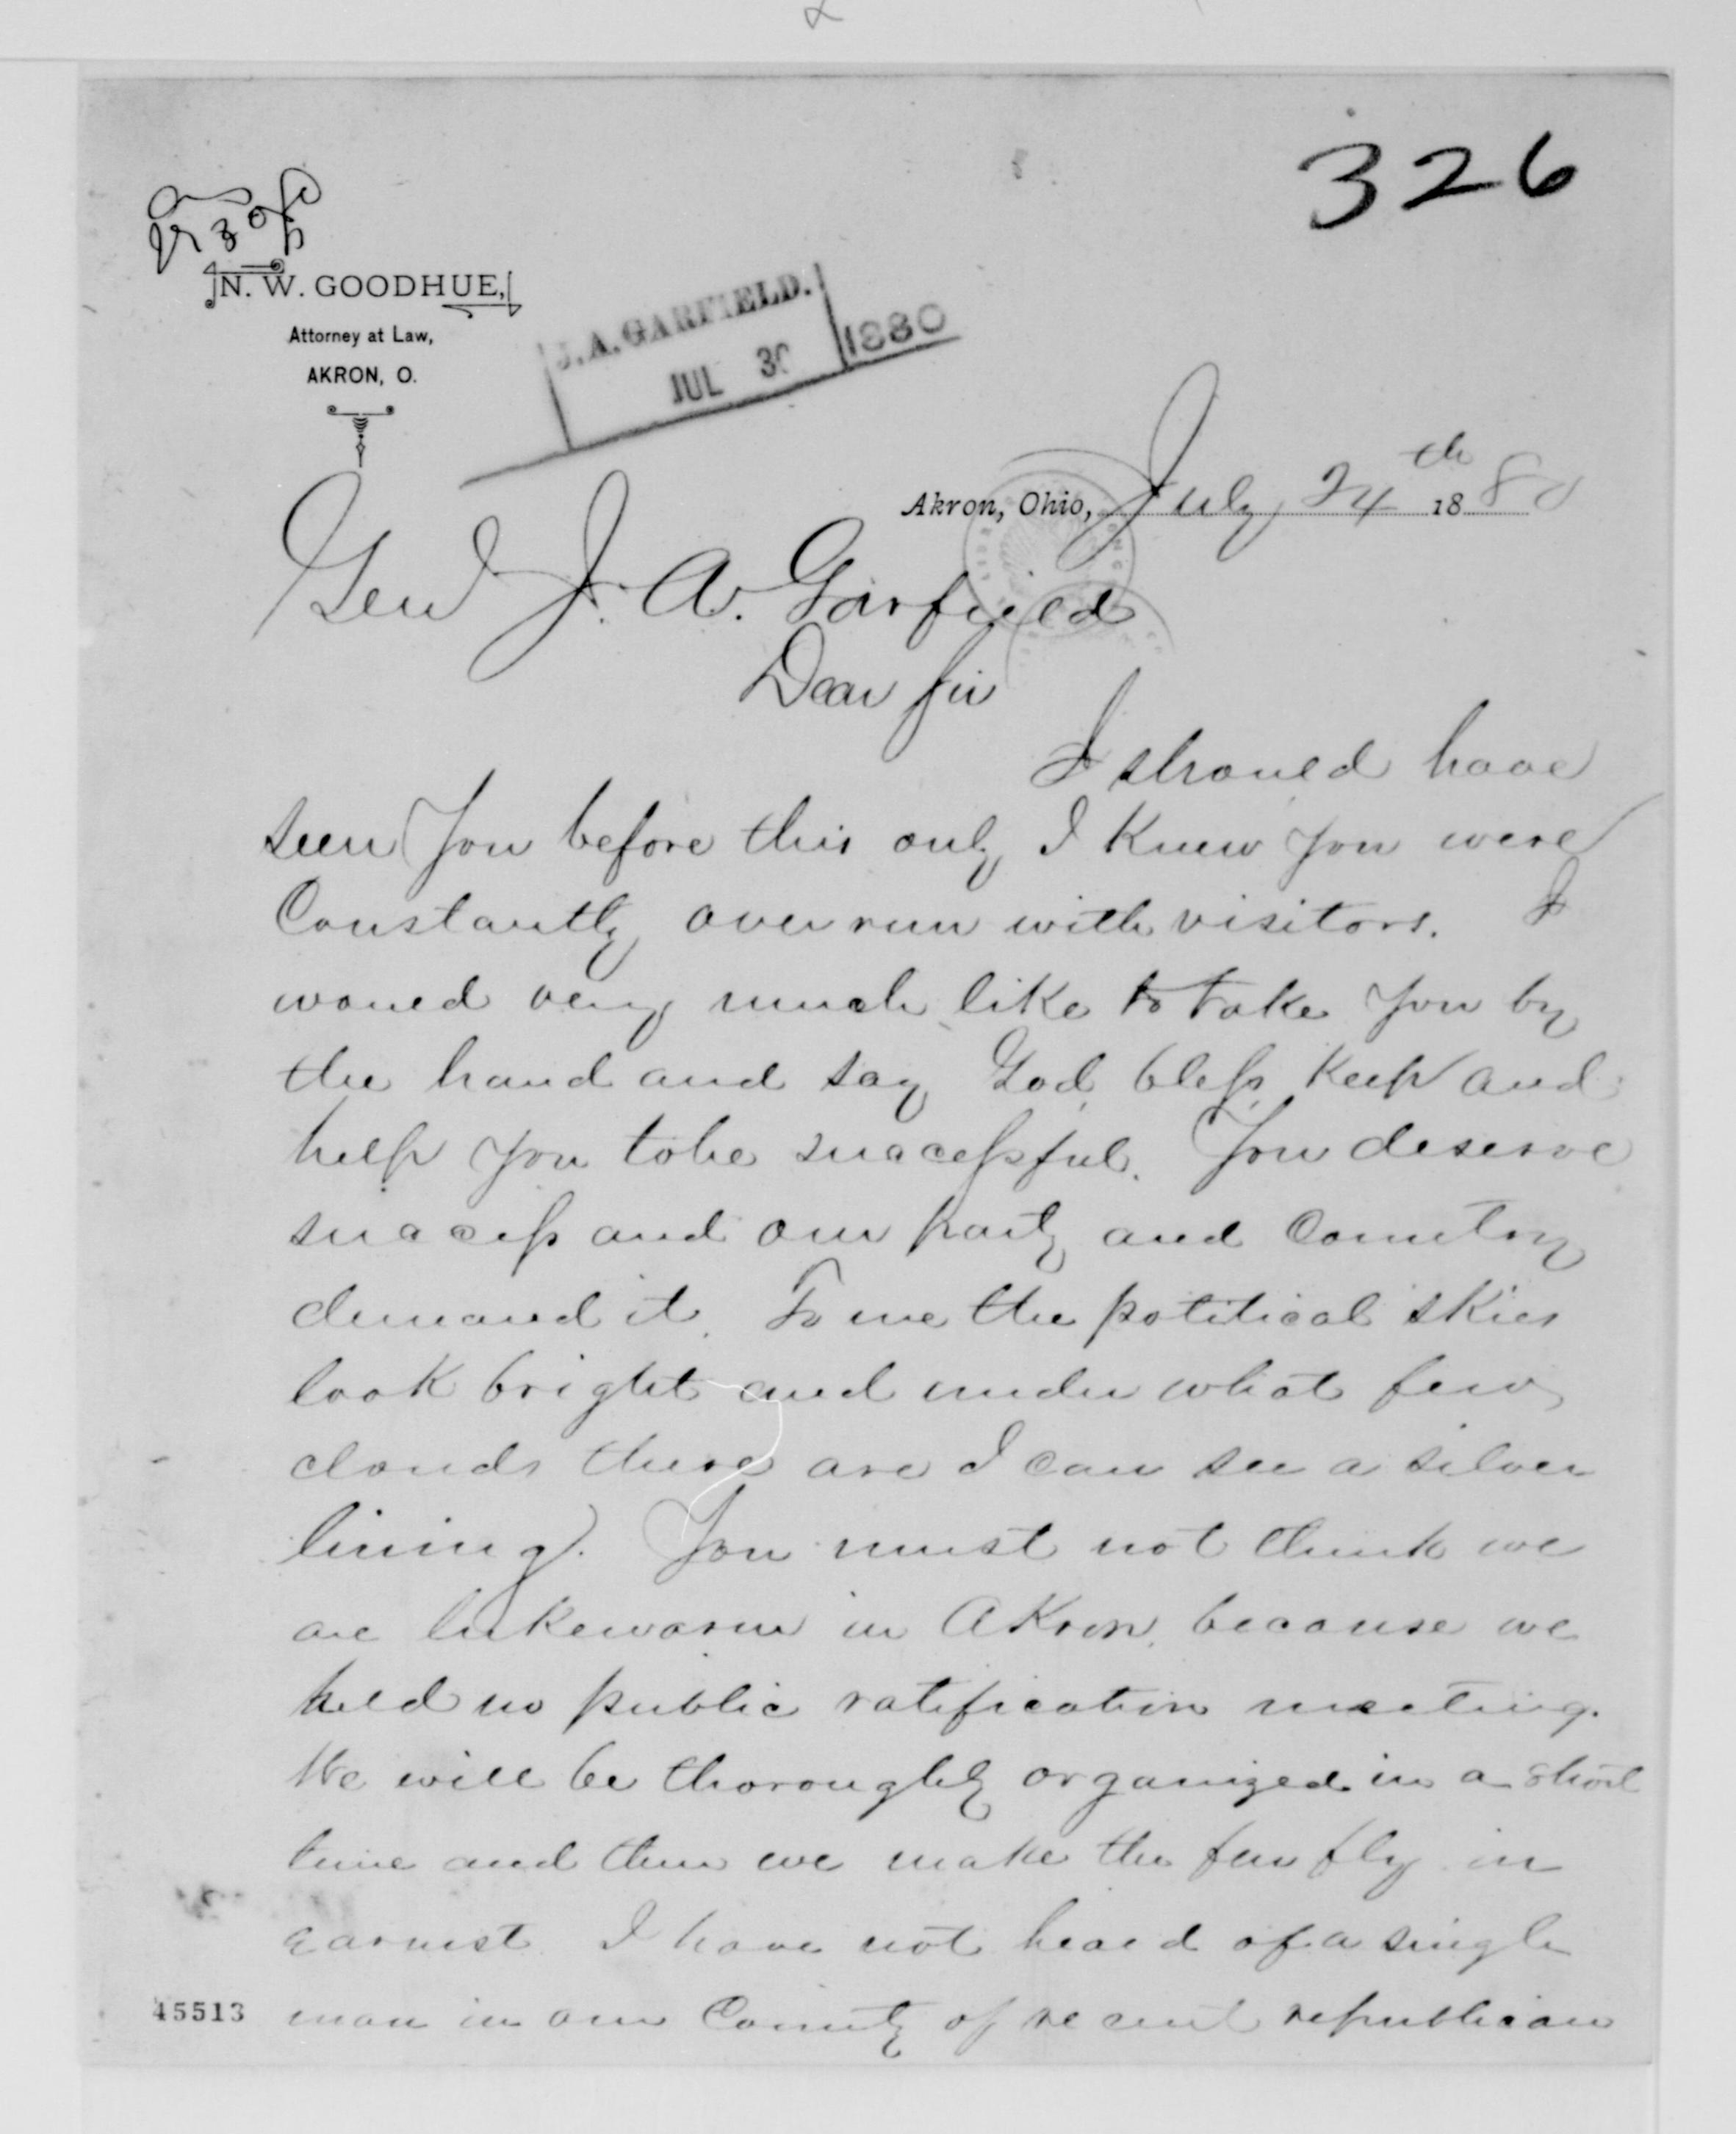 326
Ans
Jy 30/80
N. W. GOODHUE,
Attorney at Law,
AKRON, O.
J. A. GARFIELD.
JUL 30 1880
Akron, Ohio, July 24th 1880
Genl J. A. Garfield
Dear Sir
I should have
seen you before this only I knew you were
Constantly over run with visitors. I
would very much like to take you by
the hand and say God bless keep and
help you to be successful. You deserve
success and our party and Country
demand it. To me the political skies
look bright and under what few
clouds there are I can see a silver
lining. You must not think we
are lukewarm in Akron, because we
held no public ratification meeting.
We will be thoroughly organized in a short
time and then we make the fur fly in
earnest. I have not heard of a single
man in our County of recent republican
45513